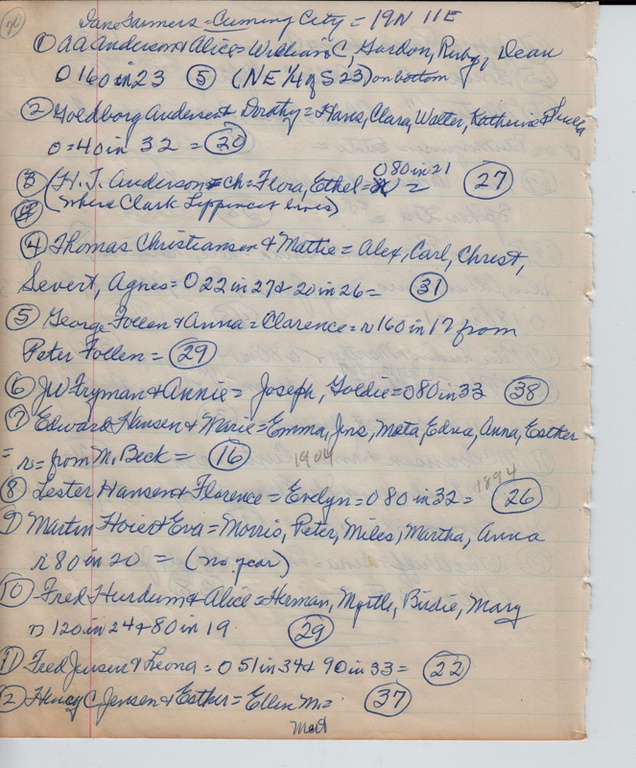 20
Farmers = Cuming City = 19N 11E
① A A Anderson & Alice = William C, Gordon, Ruby, Dean
O 160 in 23 ⑤ (NE 1/4 of S 23) on bottom
② Goldborg Andersen & Dorothy = Hans, Clara, Walter, Katherine &
O = 40 in 32 = ⑳
O 80 in 21
③ (H. J. Anderson = ch = Flora, Ethel = = ㉗
(where Clark Lippincot lives)
④ Thomas Christiansen & Mattie = Alex, Carl, Christ,
Severt, Agnes = O 22 in 27 & 20 in 26 = ㉛
⑤ George Follen & Anna = Clarence = r 160 in 17 from
Peter Follen = ㉙
⑥ JW Fryman & Annie = Joseph, Goldie = O 80 in 33 ㊳
⑦ Edward Hansen & Marie = Emma, Jens, Meta, Edna, Anna, Esther
= r = from M. Beck = ⑯ 1904
1894
⑧ Lester Hansen & Florence = Evelyn = O 80 in 32 = ㉖
9) Martin Hoier & Eva = Morris, Peter, Miles, Martha, Anna
r 80 in 20 = (no year)
⑩ Fred Hurdum & Alice = Herman, Myrtle, Birdie, Mary
r 120 in 24 & 80 in 19 ㉙
11) Fred Jensen & Leona = O 51 in 34 & 90 in 33 = ㉒
12) Henry C Jensen & Esther = Ellen M = ㊲